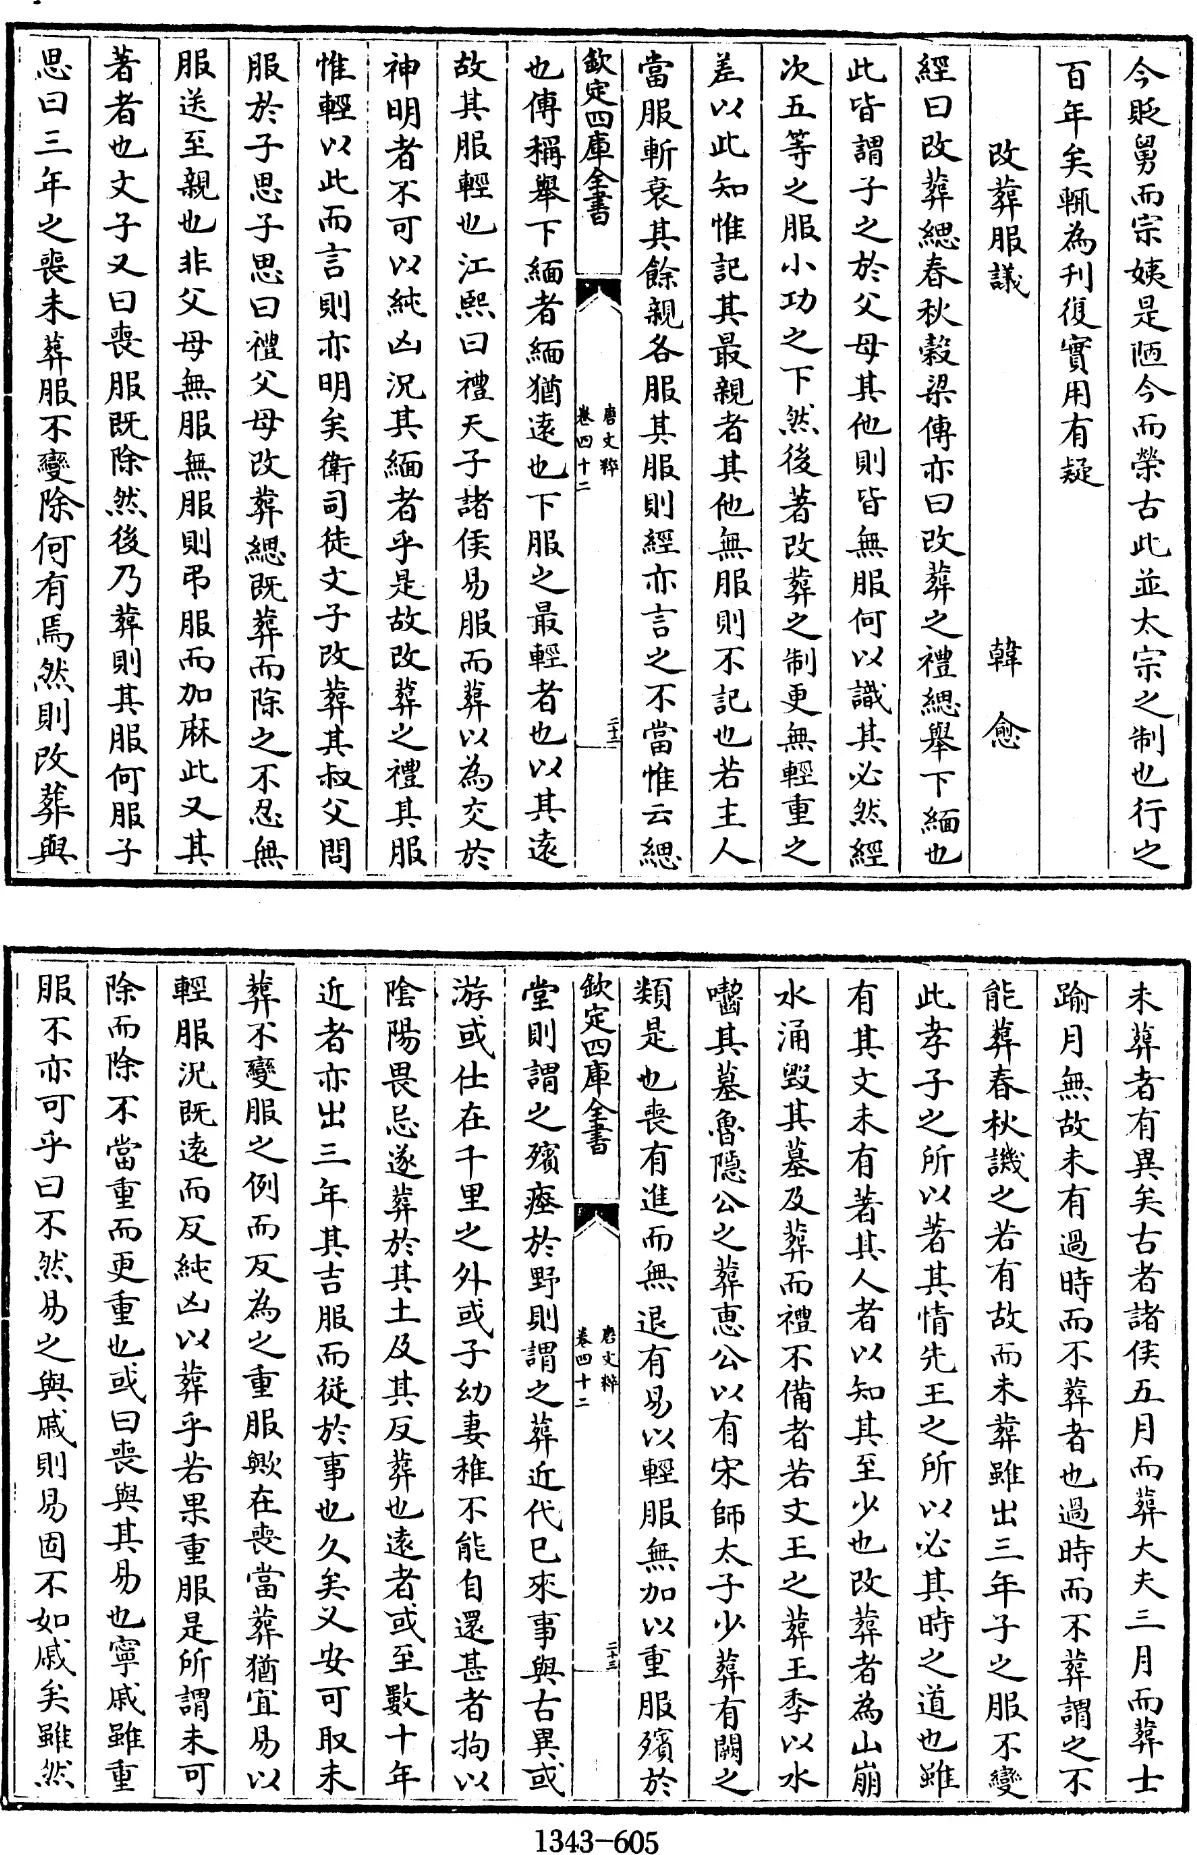 今貶舅而宗姨是陋今而榮古此並太宗之制也行之
百年矣輒為刊復實用有疑
改葬服議　韓愈
經曰改葬緦春秋穀梁傳亦曰改葬之禮緦舉下緬也
此皆謂子之於父母其他則皆無服何以識其必然經
次五等之服小功之下然後著改葬之制更無輕重之
差以此知惟記其最親者其他無服則不記也若主人
當服斬衰其餘親各服其服則經亦言之不當惟云緦
欽定四庫全書　唐文粹　卷四十二　二十二
也傳稱舉下緬者緬猶遠也下服之最輕者也以其遠
故其服輕也江熙曰禮天子諸侯易服而葬以為交於
神明者不可以純凶況其緬者乎是故改葬之禮其服
惟輕以此而言則亦明矣衛司徒文子改葬其叔父問
服於子思子思曰禮父母改葬緦既葬而除之不忍無
服送至親也非父母無服無服則弔服而加麻此又其
著者也文子又曰喪服既除然後乃葬則其服何服子
思曰三年之喪未葬服不變除何有焉然則改葬與
未葬者有異矣古者諸侯五月而葬大夫三月而葬士
踰月無故未有過時而不葬者也過時而不葬謂之不
能葬春秋譏之若有故而未葬雖出三年子之服不變
此孝子之所以著其情先王之所以必其時之道也雖
有其文未有著其人者以知其至少也改葬者為山崩
水涌毀其墓及葬而禮不備者若文王之葬王季以水
囓其墓魯隱公之葬惠公以有宋師太子少葬有闕之
類是也喪有進而無退有易以輕服無加以重服殯於
欽定四庫全書　唐文粹　卷四十二　二十三
堂則謂之殯瘞於野則謂之葬近代已來事與古異或
游或仕在千里之外或子幼妻稚不能自還甚者拘以
陰陽畏忌遂葬於其土及其反葬也遠者或至數十年
近者亦出三年其吉服而從於事也久矣又安可取未
葬不變服之例而反為之重服歟在喪當葬猶宜易以
輕服況既遠而反純凶以葬乎若果重服是所謂未可
除而除不當重而更重也或曰喪與其易也寧戚雖重
服不亦可乎曰不然易之與戚則易固不如戚矣雖然
1343-605